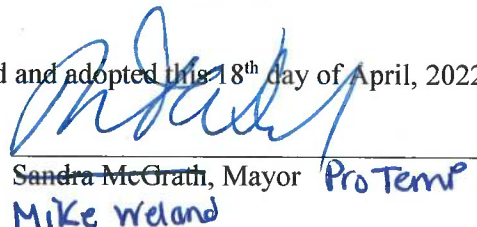 d and adopted this 18th day of April, 2022
Sandra McGrath, Mayor Pro Temp
Mike Weland